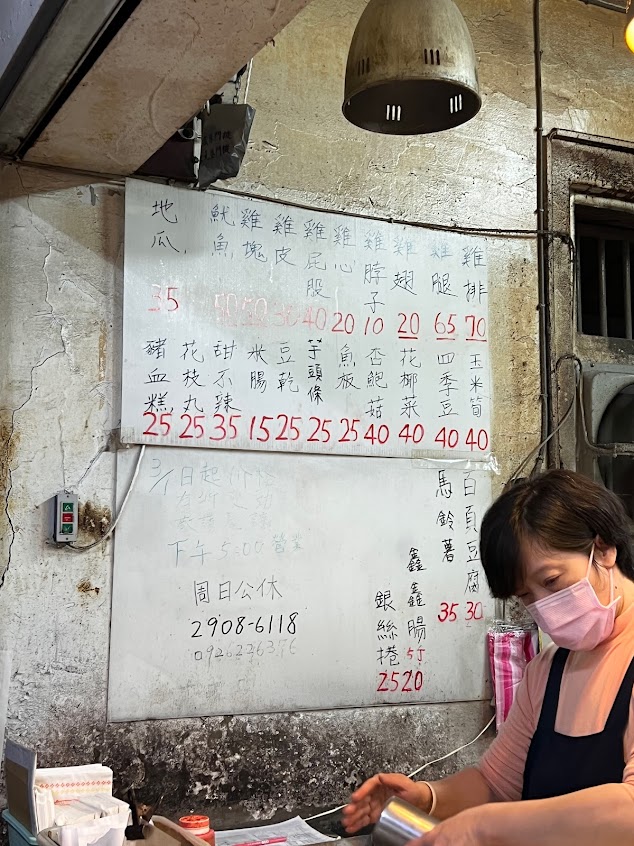 雞排 70
雞腿 65
雞翅 20
雞脖子 10
雞心 20
雞屁股 40
雞皮 30
雞塊 50
魷魚 50
地瓜 35
玉米筍 40
四季豆 40
花椰菜 40
杏鮑菇 40
魚板 25
芋頭條 25
豆乾 25
米腸 15
甜不辣 35
花枝丸 25
豬血糕 25
白頁豆腐 30
馬鈴薯 35
鑫鑫腸 20
銀絲捲 25
3/1日起
下午5:00營業
周日公休
2908-6118